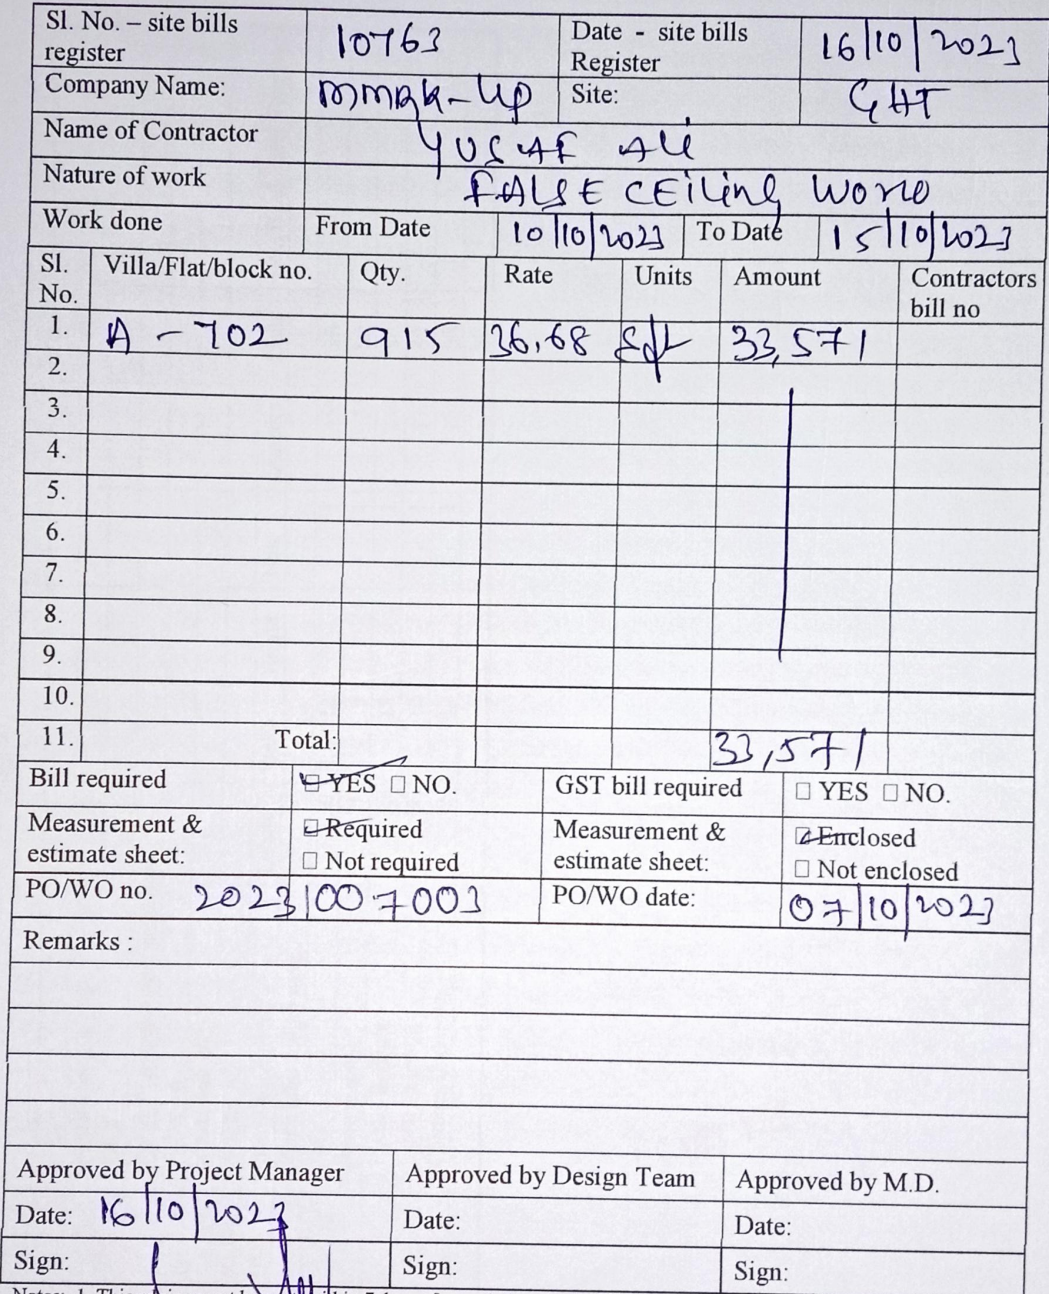 Sl. No. – site bills register 10763 Date - site bills Register 16/10/2023
Company Name: mmRk-Up Site: GHT
Name of Contractor YUSAF Ali
Nature of work FALSE CEiling Work
Work done From Date 10/10/2023 To Date 15/10/2023
Sl. No. Villa/Flat/block no. Qty. Rate Units Amount Contractors bill no
1. A - 702 915 36.68 sft 33,571
2.
3.
4.
5.
6.
7.
8.
9.
10.
11. Total: 33,571
Bill required YES NO. GST bill required YES NO.
Measurement & estimate sheet: Required Not required Measurement & estimate sheet: Enclosed Not enclosed
PO/WO no. 20231007003 PO/WO date: 07/10/2023
Remarks :
Approved by Project Manager Approved by Design Team Approved by M.D.
Date: 16/10/2023 Date: Date:
Sign: Sign: Sign: